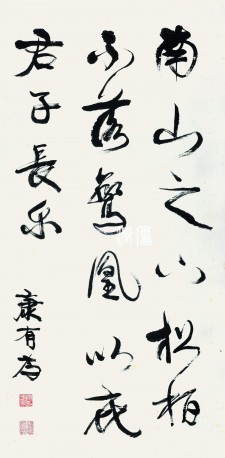 南山之小松柏
不落鸞凰以庇
君子長樂
康有為